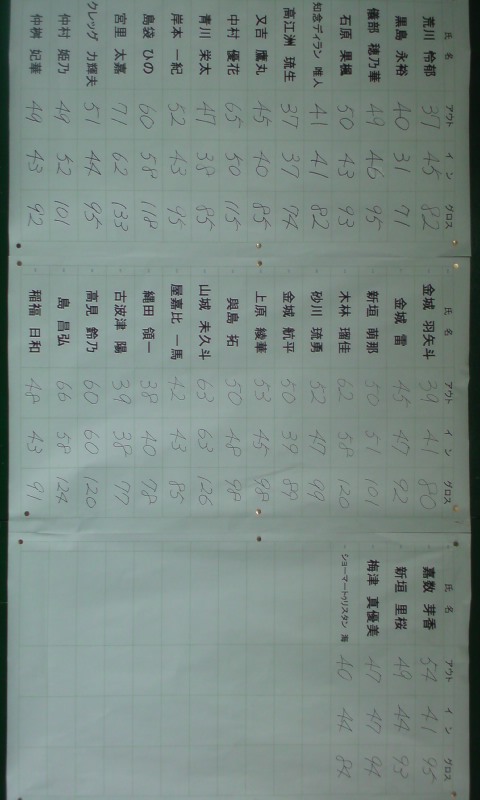 氏 名 アウト イン グロス
荒川 怜郁 37 45 82
黒島 永裕 40 31 71
儀部 穂乃華 49 46 95
石原 果楓 50 43 93
知念ディラン 唯人 41 41 82
高江洲 琉生 37 37 74
又吉 鷹丸 45 40 85
中村 優花 65 50 115
青川 栄太 47 38 85
岸本 一紀 52 43 95
島袋 ひの 60 58 118
宮里 大嘉 71 62 133
クレッグ 力輝夫 51 44 95
仲村 姫乃 49 52 101
仲桝 妃華 49 43 92
氏 名 アウト イン グロス
金城 羽矢斗 39 41 80
金城 雷 45 47 92
新垣 萌那 50 51 101
木林 瑠佳 62 58 120
砂川 琉勇 52 47 99
金城 航平 50 39 89
上原 綾華 53 45 98
與島 拓 50 48 98
山城 未久斗 63 63 126
屋嘉比 一馬 42 43 85
縄田 領一 38 40 78
古波津 陽 39 38 77
高見 鈴乃 60 60 120
島 昌弘 66 58 124
稲福 日和 48 43 91
氏 名 アウト イン グロス
嘉数 芽香 54 41 95
新垣 里桜 49 44 93
梅津 真優美 47 47 94
ショーマートゥリスタン 海 40 44 84